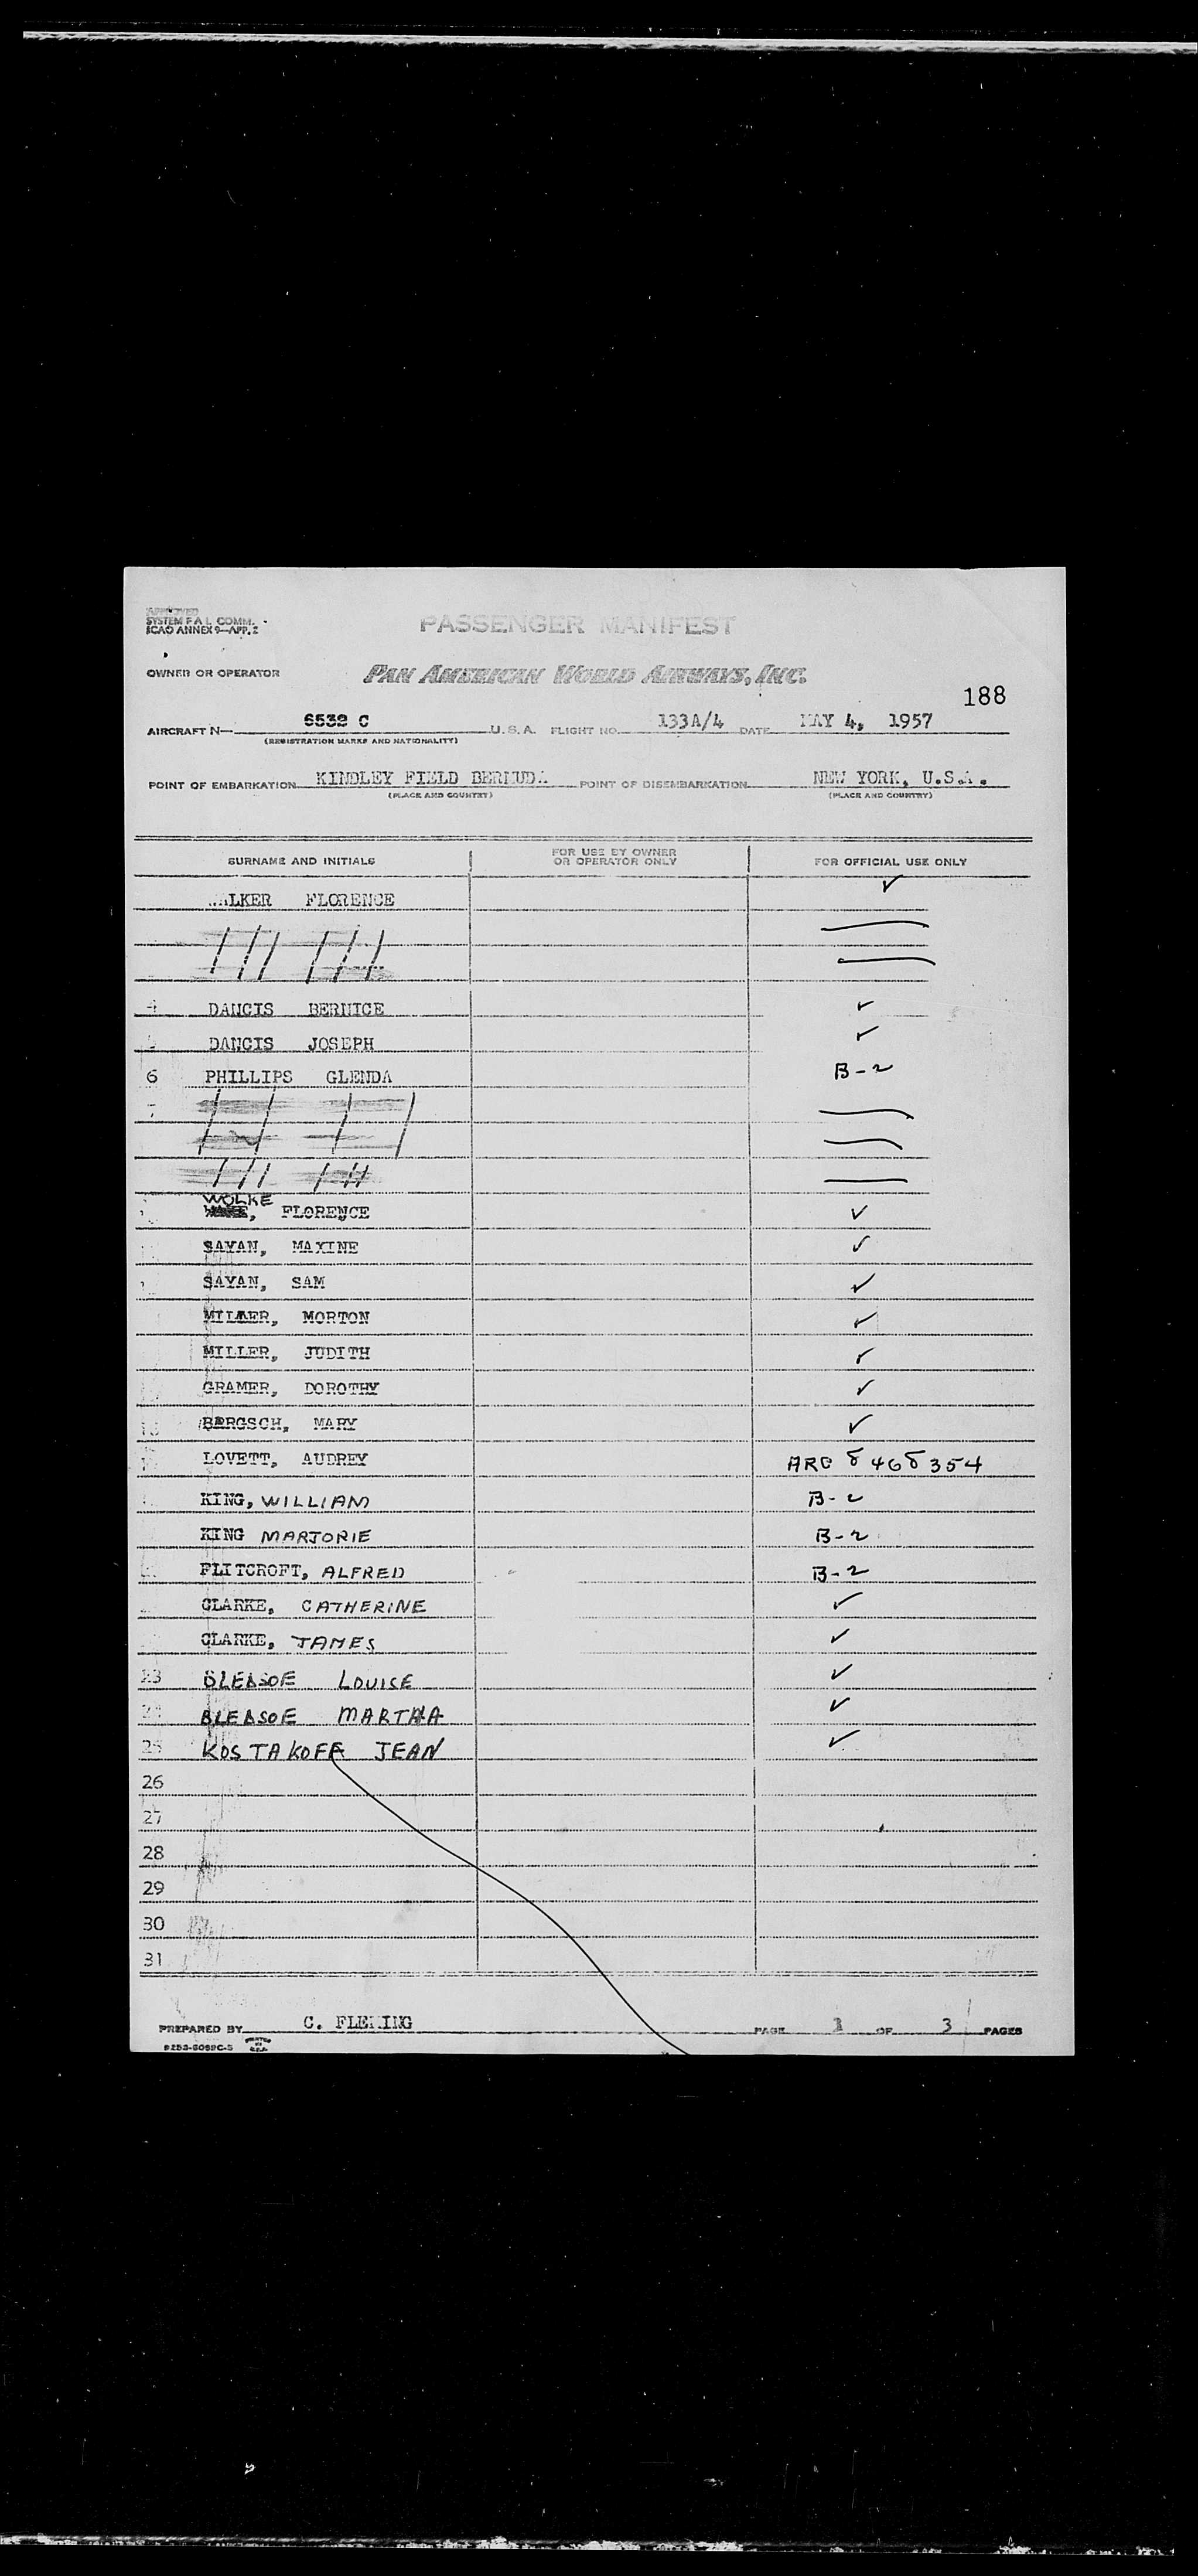 APPROVED
SYSTEM F A L COMM.
ICAO ANNEX 9—APP. 2
PASSENGER MANIFEST
OWNER OR OPERATOR PAN AMERICAN WORLD AIRWAYS, INC.
188
AIRCRAFT N— 6532 C U.S.A. FLIGHT NO. 133A/4 DATE MAY 4, 1957
(REGISTRATION MARKS AND NATIONALITY)
POINT OF EMBARKATION KINDLEY FIELD BERMUDA POINT OF DISEMBARKATION NEW YORK, U.S.A.
(PLACE AND COUNTRY) (PLACE AND COUNTRY)
SURNAME AND INITIALS FOR USE BY OWNER OR OPERATOR ONLY FOR OFFICIAL USE ONLY
FLORENCE ✓
4 DANCIS BERNICE ✓
5 DANCIS JOSEPH ✓
6 PHILLIPS GLENDA B-2
7
WOLKE
FLORENCE ✓
SAYAN, MAXINE ✓
SAYAN, SAM ✓
MILLER, MORTON ✓
MILLER, JUDITH ✓
GRAMER, DOROTHY ✓
BERGSCH, MARY ✓
LOVETT, AUDREY ARC 8468354
KING, WILLIAM B-2
KING MARJORIE B-2
FLITCROFT, ALFRED B-2
CLARKE, CATHERINE ✓
CLARKE, JAMES ✓
23 BLEDSOE LOUISE ✓
24 BLEDSOE MARTHA ✓
25 KOSTAKOFF JEAN ✓
26
27
28
29
30
31
PREPARED BY C. FLEMING PAGE 3 OF 3 PAGES